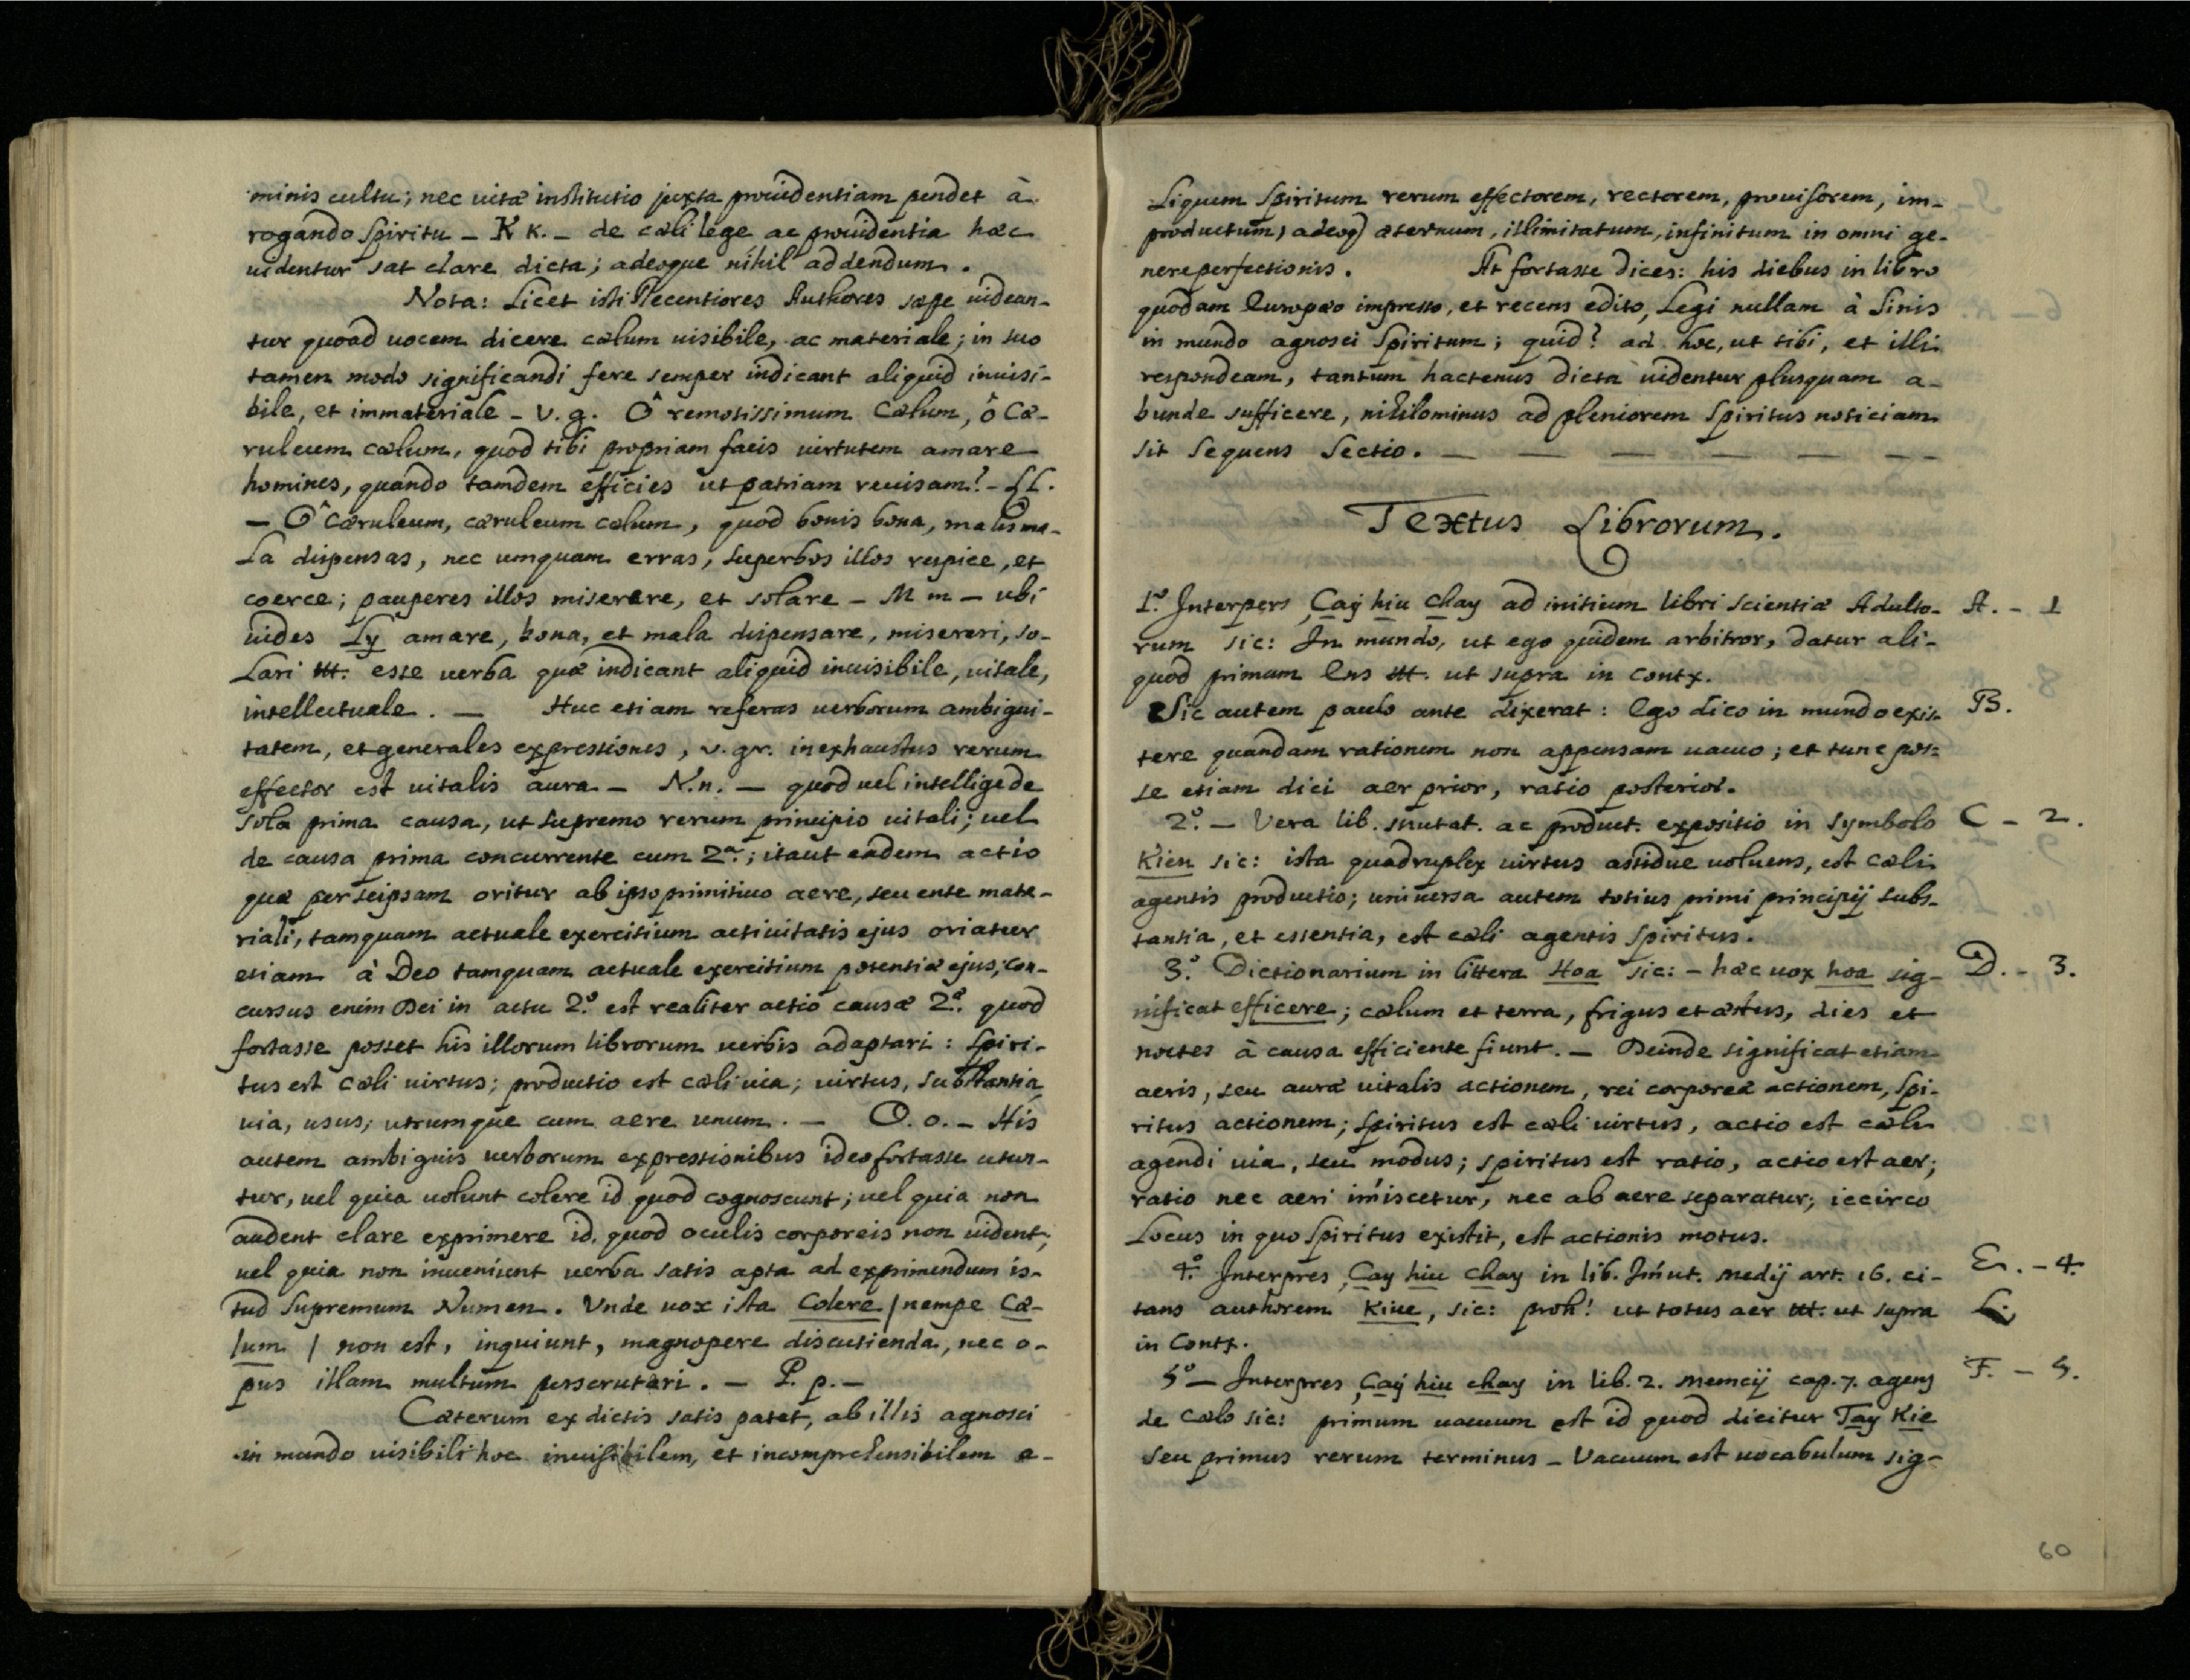 minis cultu; nec uitæ institutio juxta prouidentiam pendet à
rogando Spiritu – K k. – de cæli lege ac prouidentia hæc
uidentur sat clare dicta; adeoque nihil addendum.
Nota: Licet isti Recentiores Authores sæpe uidean-
tur quoad uocem dicere cælum uisibile, ac materiale; in suo
tamen modo significandi fere semper indicant aliquid inuisi-
bile, et immateriale – v. g. Ô remotissimum Cælum, ô Cæ-
ruleum cælum, quod tibi propriam facis uirtutem amare
homines, quando tamdem efficies ut patriam reuisam? – LL.
– Ô Cæruleum, cæruleum cælum, quod bonis bona, malis ma-
la dispensas, nec umquam erras, superbos illos respice, et
coerce; pauperes illos miserere, et solare – M m – ubi
uides Ly amare, bona, et mala dispensare, misereri, so-
lari ttt. esse uerba quæ indicant aliquid inuisibile, uitale,
intellectuale. – Huc etiam referas uerborum ambigui-
tatem, et generales expressiones, v. gr. inexhaustus rerum
effector est uitalis aura – N. n. – quod uel intellige de
sola prima causa, ut supremo rerum principio uitali; uel
de causa prima concurrente cum 2ª.; itaut eadem actio
quæ per seipsam oritur ab ipso primitiuo aere, seu ente mate-
riali, tamquam actuale exercitium actiuitatis ejus oriatur
etiam à Deo tamquam actuale exercitium potentiæ ejus, con-
cursus enim Dei in actu 2º. est realiter actio causæ 2æ. quod
fortasse posset his illorum librorum uerbis adaptari: Spiri-
tus est Cæli uirtus; productio est cæli uia; uirtus, substantia,
uia, usus; utrumque cum aere unum. – O. o. – His
autem ambiguis uerborum expressionibus ideo fortasse utun-
tur, uel quia uolunt colere id quod cognoscunt; uel quia non
audent clare exprimere id. quod oculis corporeis non uident;
uel quia non inueniunt uerba satis apta ad exprimendum is-
tud Supremum Numen. Vnde uox ista Colere / nempe Cæ-
lum / non est, inquiunt, magnopere discutienda, nec o-
pus illam multum perscrutari. – P. p. –
Cæterum ex dictis satis patet, ab illis agnosci
in mundo uisibili hoc inuisibilem, et incomprehensibilem a-
Liquem Spiritum rerum effectorem, rectorem, prouisorem, im-
productum, adeoq) æternum, illimitatum, infinitum in omni ge-
nere perfectionis. At fortasse dices: his diebus in libro
quodam Europæo impresso, et recens edito, Legi nullam à Sinis
in mundo agnosci Spiritum; quid? ad hoc, ut tibi, et illi
respondeam, tantum hactenus dicta uidentur plusquam a-
bunde sufficere, nihilominus ad pleniorem Spiritus noticiam
sit Sequens Sectio. – – – – – – –
Textus Librorum.
1º. Interpers Çaÿ hiu chay ad initium libri scientiæ Adulto- A. – 1
rum sic: In mundo, ut ego quidem arbitror, datur ali-
quod primum Ens ttt. ut supra in contx.
Sic autem paulo ante dixerat: Ego dico in mundo exis- B.
tere quandam rationem non appensam uacuo; et tunc pos-
se etiam dici aer prior, ratio posterior.
2º. – Vera lib. mutat. ac product. expositio in symbolo C – 2.
Kien sic: ista quadruplex uirtus assidue uoluens, est cæli
agentis productio; uniuersa autem totius primi principij subs-
tantia, et essentia, est cæli agentis Spiritus.
3º. Dictionarium in littera Hoa sic: – hæc uox hoa sig- D. – 3.
nificat efficere; cælum et terra, frigus et æstus, dies et
noctes à causa efficiente fiunt. – Deinde significat etiam
aeris, seu auræ uitalis actionem, rei corporeæ actionem, Spi-
ritus actionem; Spiritus est cæli uirtus, actio est cæli
agendi uia, seu modus; spiritus est ratio, actio est aer;
ratio nec aeri im̃iscetur, nec ab aere separatur; iccirco
Locus in quo Spiritus existit, est actionis motus.
4º. Interpres Çay hiu chay in lib. Im̃ut. medij art. 16. ci- E. – 4.
tans authorem Kiue, sic: proh! ut totus aer ttt. ut supra
in Contx.
5º – Interpres Çaÿ hiu chay in lib. 2. Memcij cap. 7. agens F. – 5.
de Cælo sic: primum uacuum est id quod dicitur Tay Kie
seu primus rerum terminus – Vacuum est uocabulum sig-
60